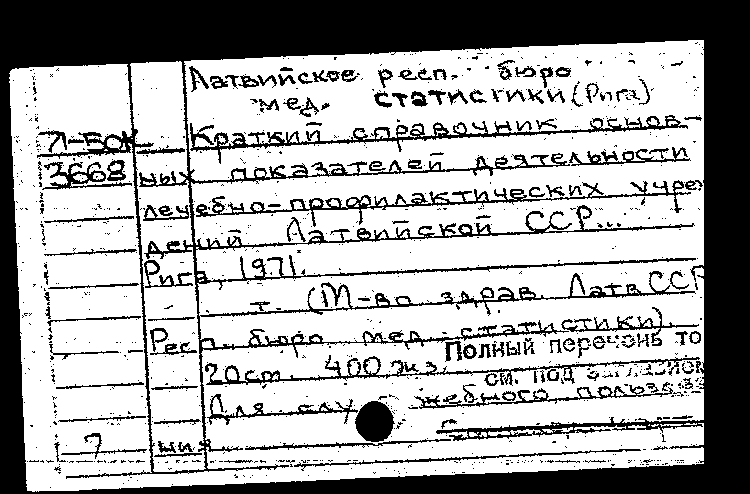 Латвийское респ. бюро
мед. статистики (Рига)
71-БОК Краткий справочник основ-
3668 ных показателей деятельности
лечебно-профилактических учре
дений Латвийской ССР...
Рига, 1971.
т. (М-во здрав. Латв ССР
Респ. бюро мед. статистики).
Полный перечень то
20 ст. 400 экз.
см. под заглавием
Для служебного пользова
7 ния